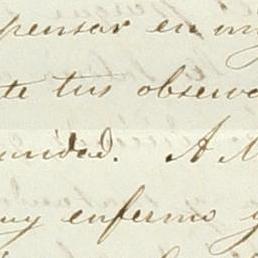 pensar en
te tus observa
unidad. A M
uy enfermo y